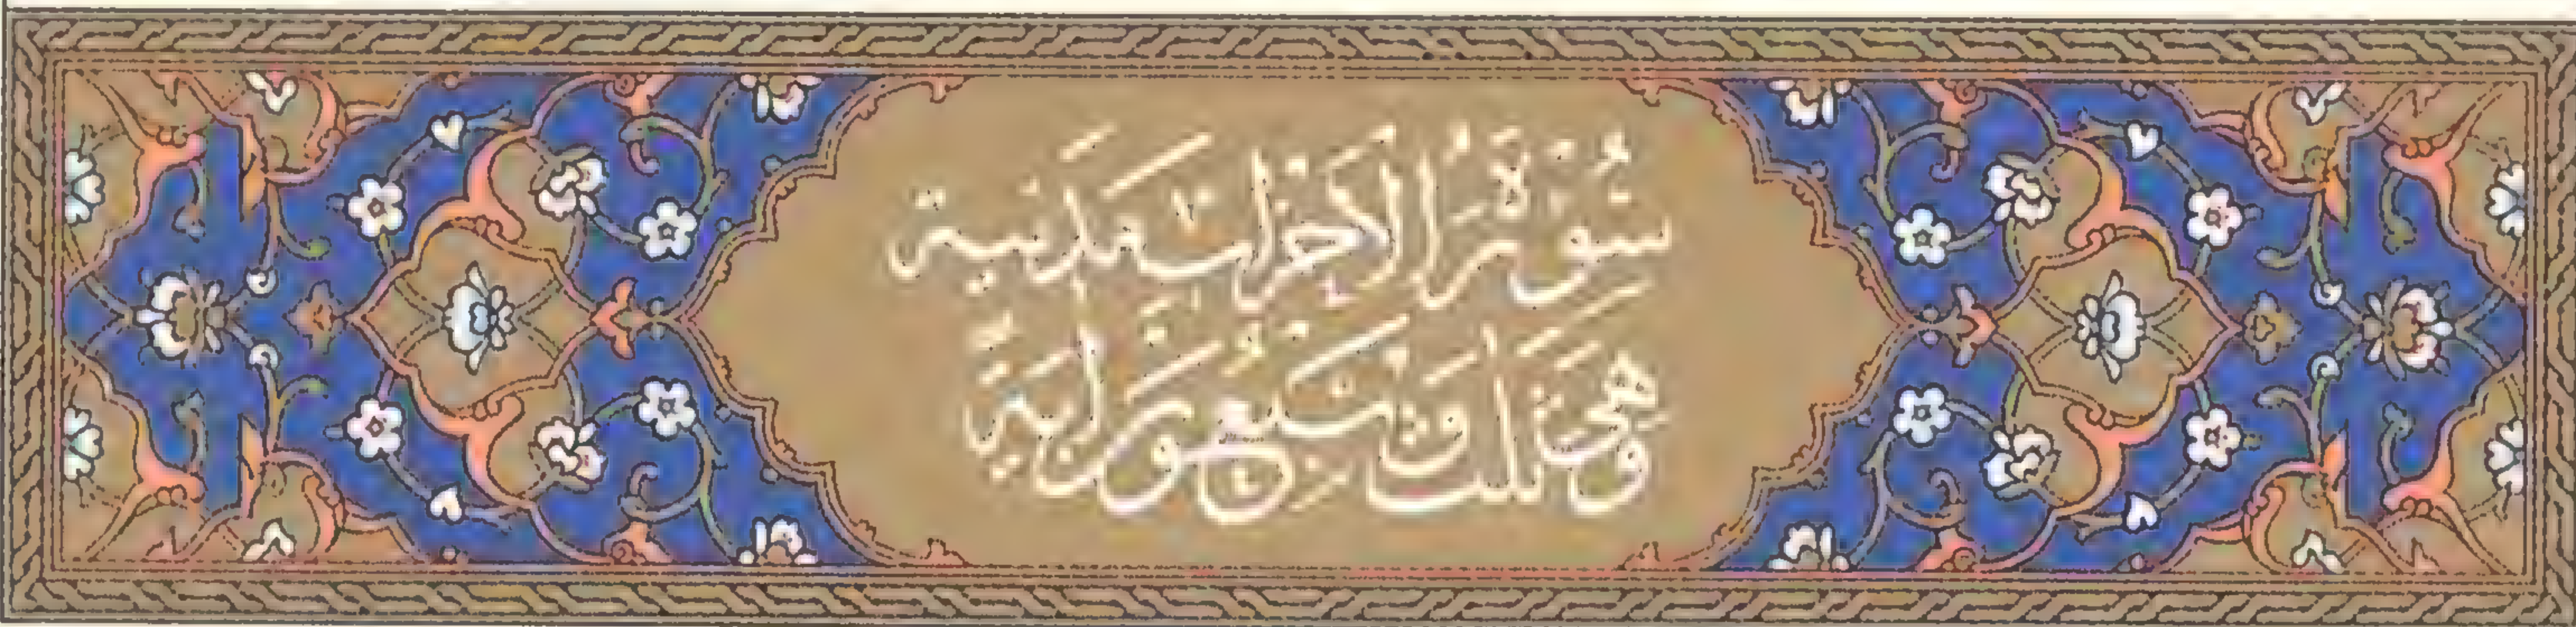 سُورَةُ الْأَحْزَابِ مَدَنِيَّةٌ
وَهِيَ ثَلَاثٌ وَسَبْعُونَ آيَةً